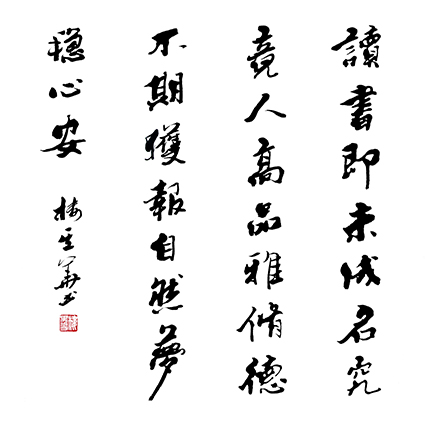 讀書即未成名究
竟人高品雅脩德
不期獲報自然夢
穩心安